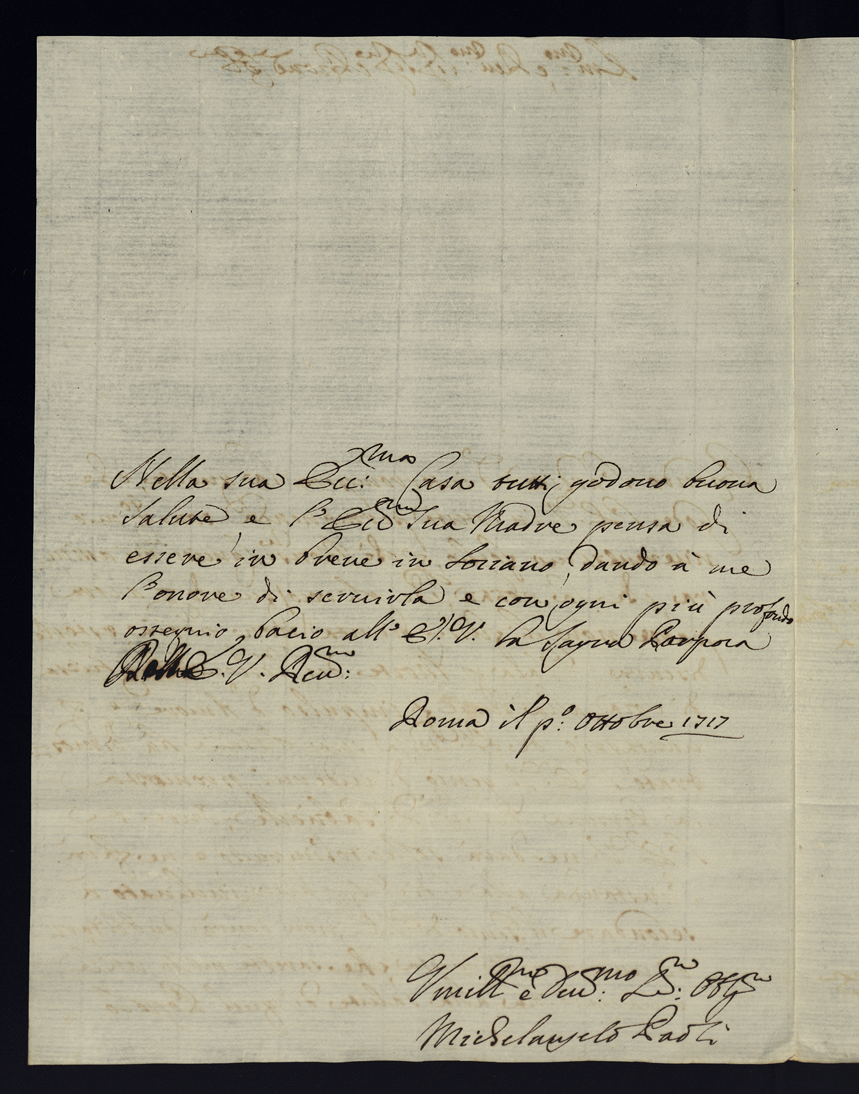 Nella sua Ecc:ma Casa tutti godono buona
salute, e l'Ecc:ma Sua Madre pensa di
essere in breve in Soriano, dando à me
l'onore di servirla e con ogni più profondo
ossequio bacio all' E. V. la Sagra Porpora
E. V. Reu:ma
Roma il p.º Ottobre 1717
Vmill:mo e Deu:mo Obl:mo
Michelangelo Paoli